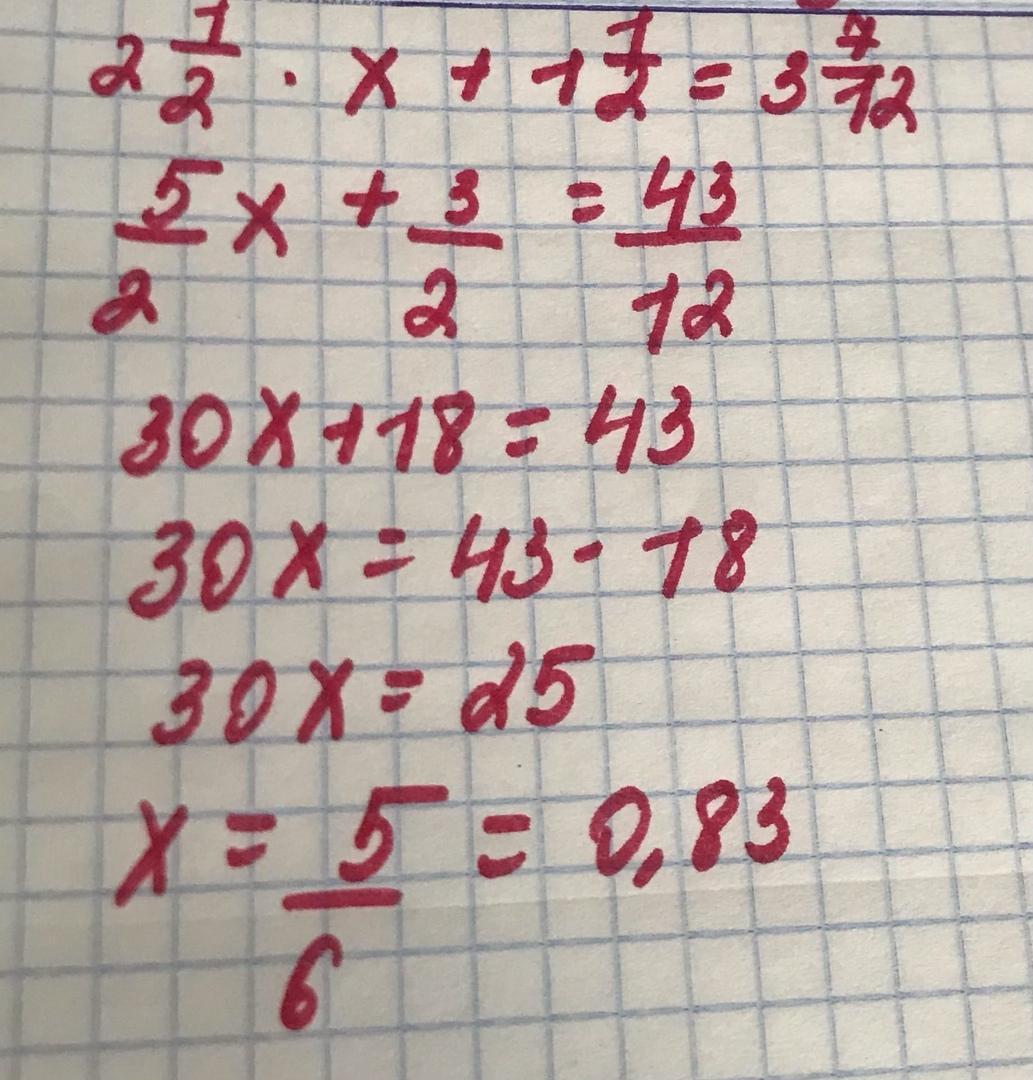 2 1/2 · x + 1 1/2 = 3 7/12
5/2 x + 3/2 = 43/12
30x+18=43
30x=43-18
30x=25
x = 5/6 = 0,83